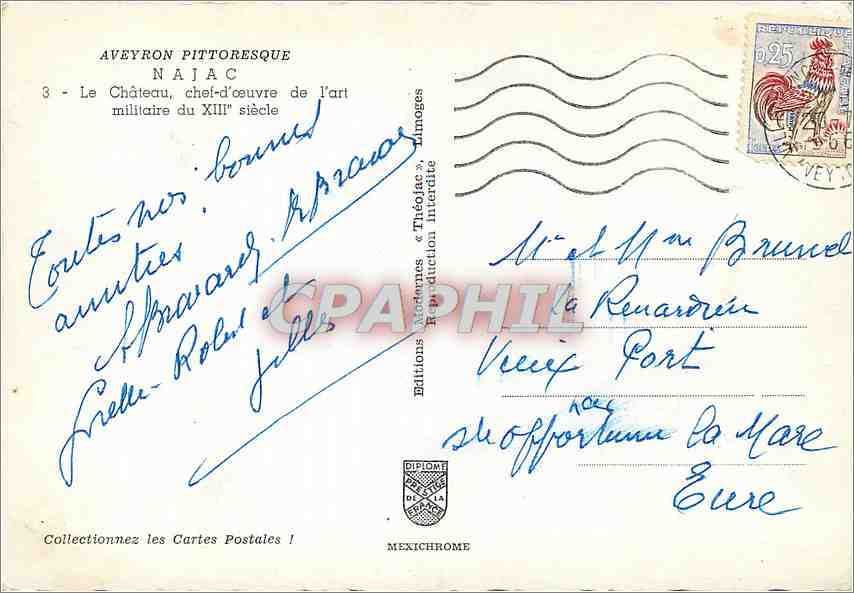 AVEYRON PITTORESQUE
NAJAC
3 - Le Château, chef-d'œuvre de l'art
militaire du XIIIe siècle
Toutes nos bonnes
amitiés.
Gilles
Collectionnez les Cartes Postales !
Editions Modernes « Théojac », Limoges
Reproduction interdite
CPAPHIL
DIPLOME
PRESTIGE
DE LA
FRANCE
MEXICHROME
REPUBLIQUE
0,25
AVEYRON
Mr et Mme Brunel
La Renardière
Vieux Port
Ste Opportune la Mare
Eure